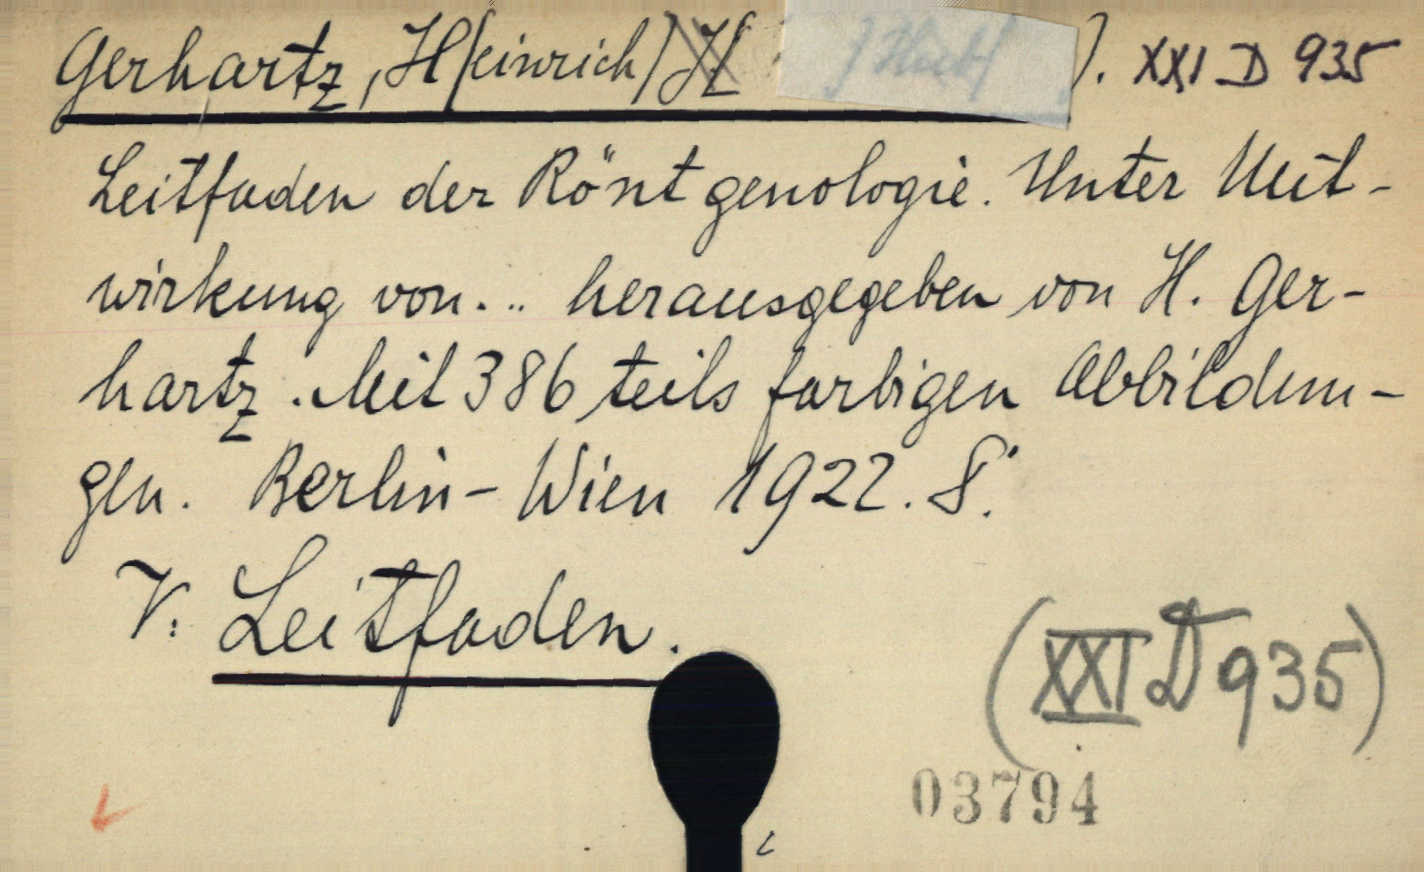 Gerhartz, H[einrich] ). XXI D 935
Leitfaden der Röntgenologie. Unter Mit-
wirkung von... herausgegeben von H. Ger-
hartz. Mit 386 teils farbigen Abbildun-
gen. Berlin-Wien 1922. 8°.
V: Leitfaden.
(XXI D 935)
03794